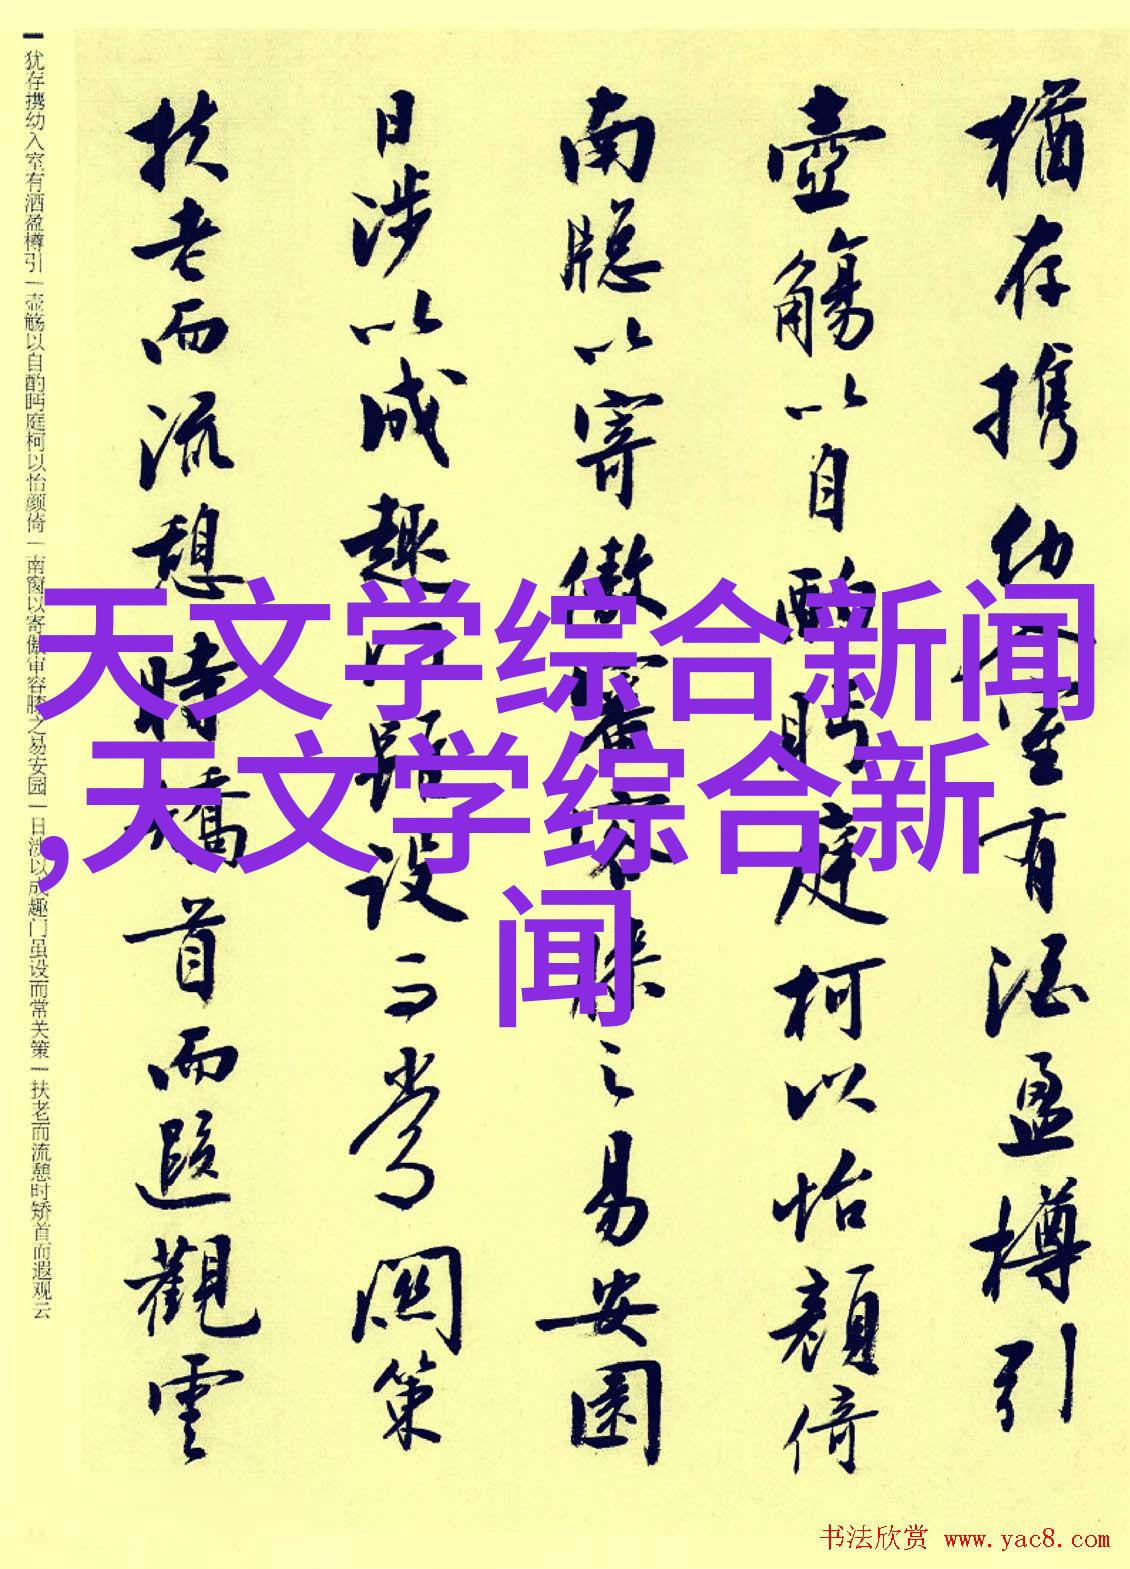 犹存携幼入室有酒盈樽引
壶觞以自酌眄庭柯以怡颜倚
南窗以寄傲审容膝之易安园
日涉以成趣门虽设而常关策
扶老而流憩时矫首而遐观云
猶存携幼入室有酒盈樽引
壺觴以自酌眄庭柯以怡顔倚
南牕以寄傲審容膝之易安園
日涉以成趣門雖設而常関策
扶老而流憩時矯首而遐觀雲
天文学综合新闻
,天文学综合新
闻
书法欣赏 www.yac8.com